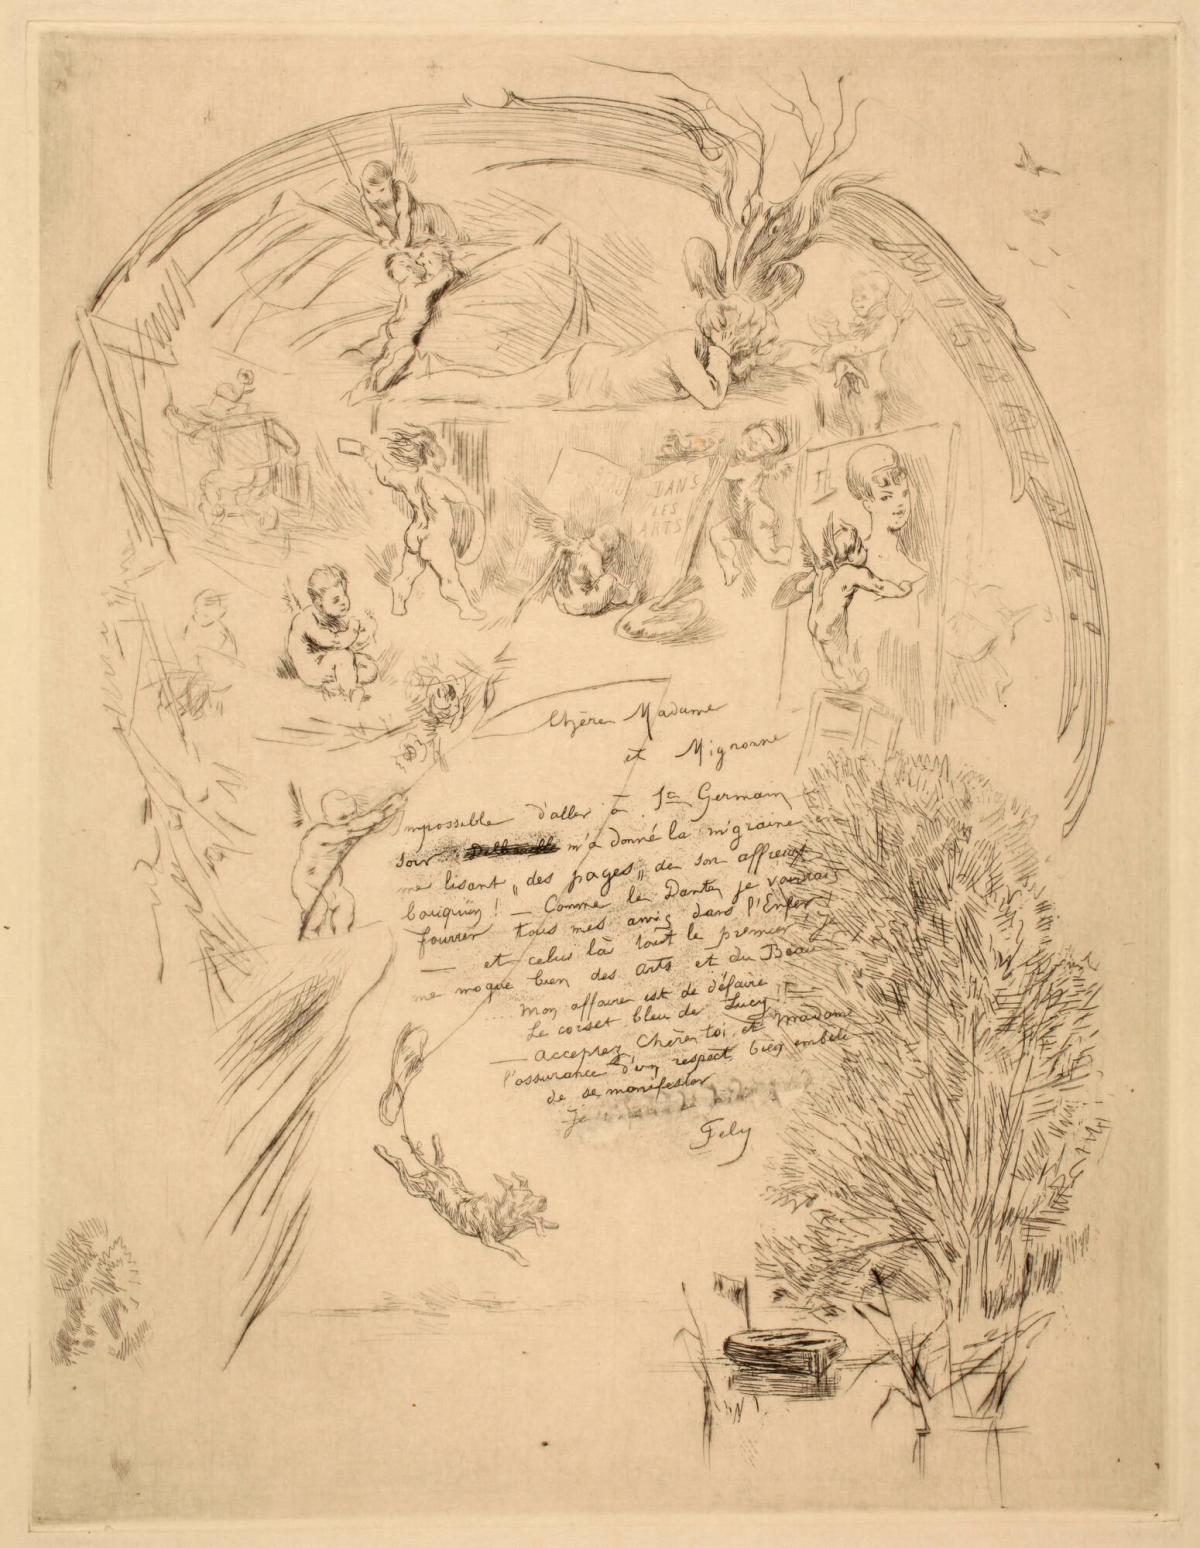 MIGRAINE!
DANS
LES
ARTS
Chère Madame
et Mignonne
Impossible d'aller à St Germain
soir m'a donné la migraine en
me lisant „des pages„ de son affreux
bouquin ! — Comme le Dante, je voudrais
fourrer tous mes amis dans l'Enfer
— et celui là tout le premier ! Je
me moque bien des arts et du Beau
Mon affaire est de défaire
Le corset bleu de Lucy !!
— Acceptez Chère toi et Madame
l'assurance d'un respect bien embêté
de se manifester
Je
Fely